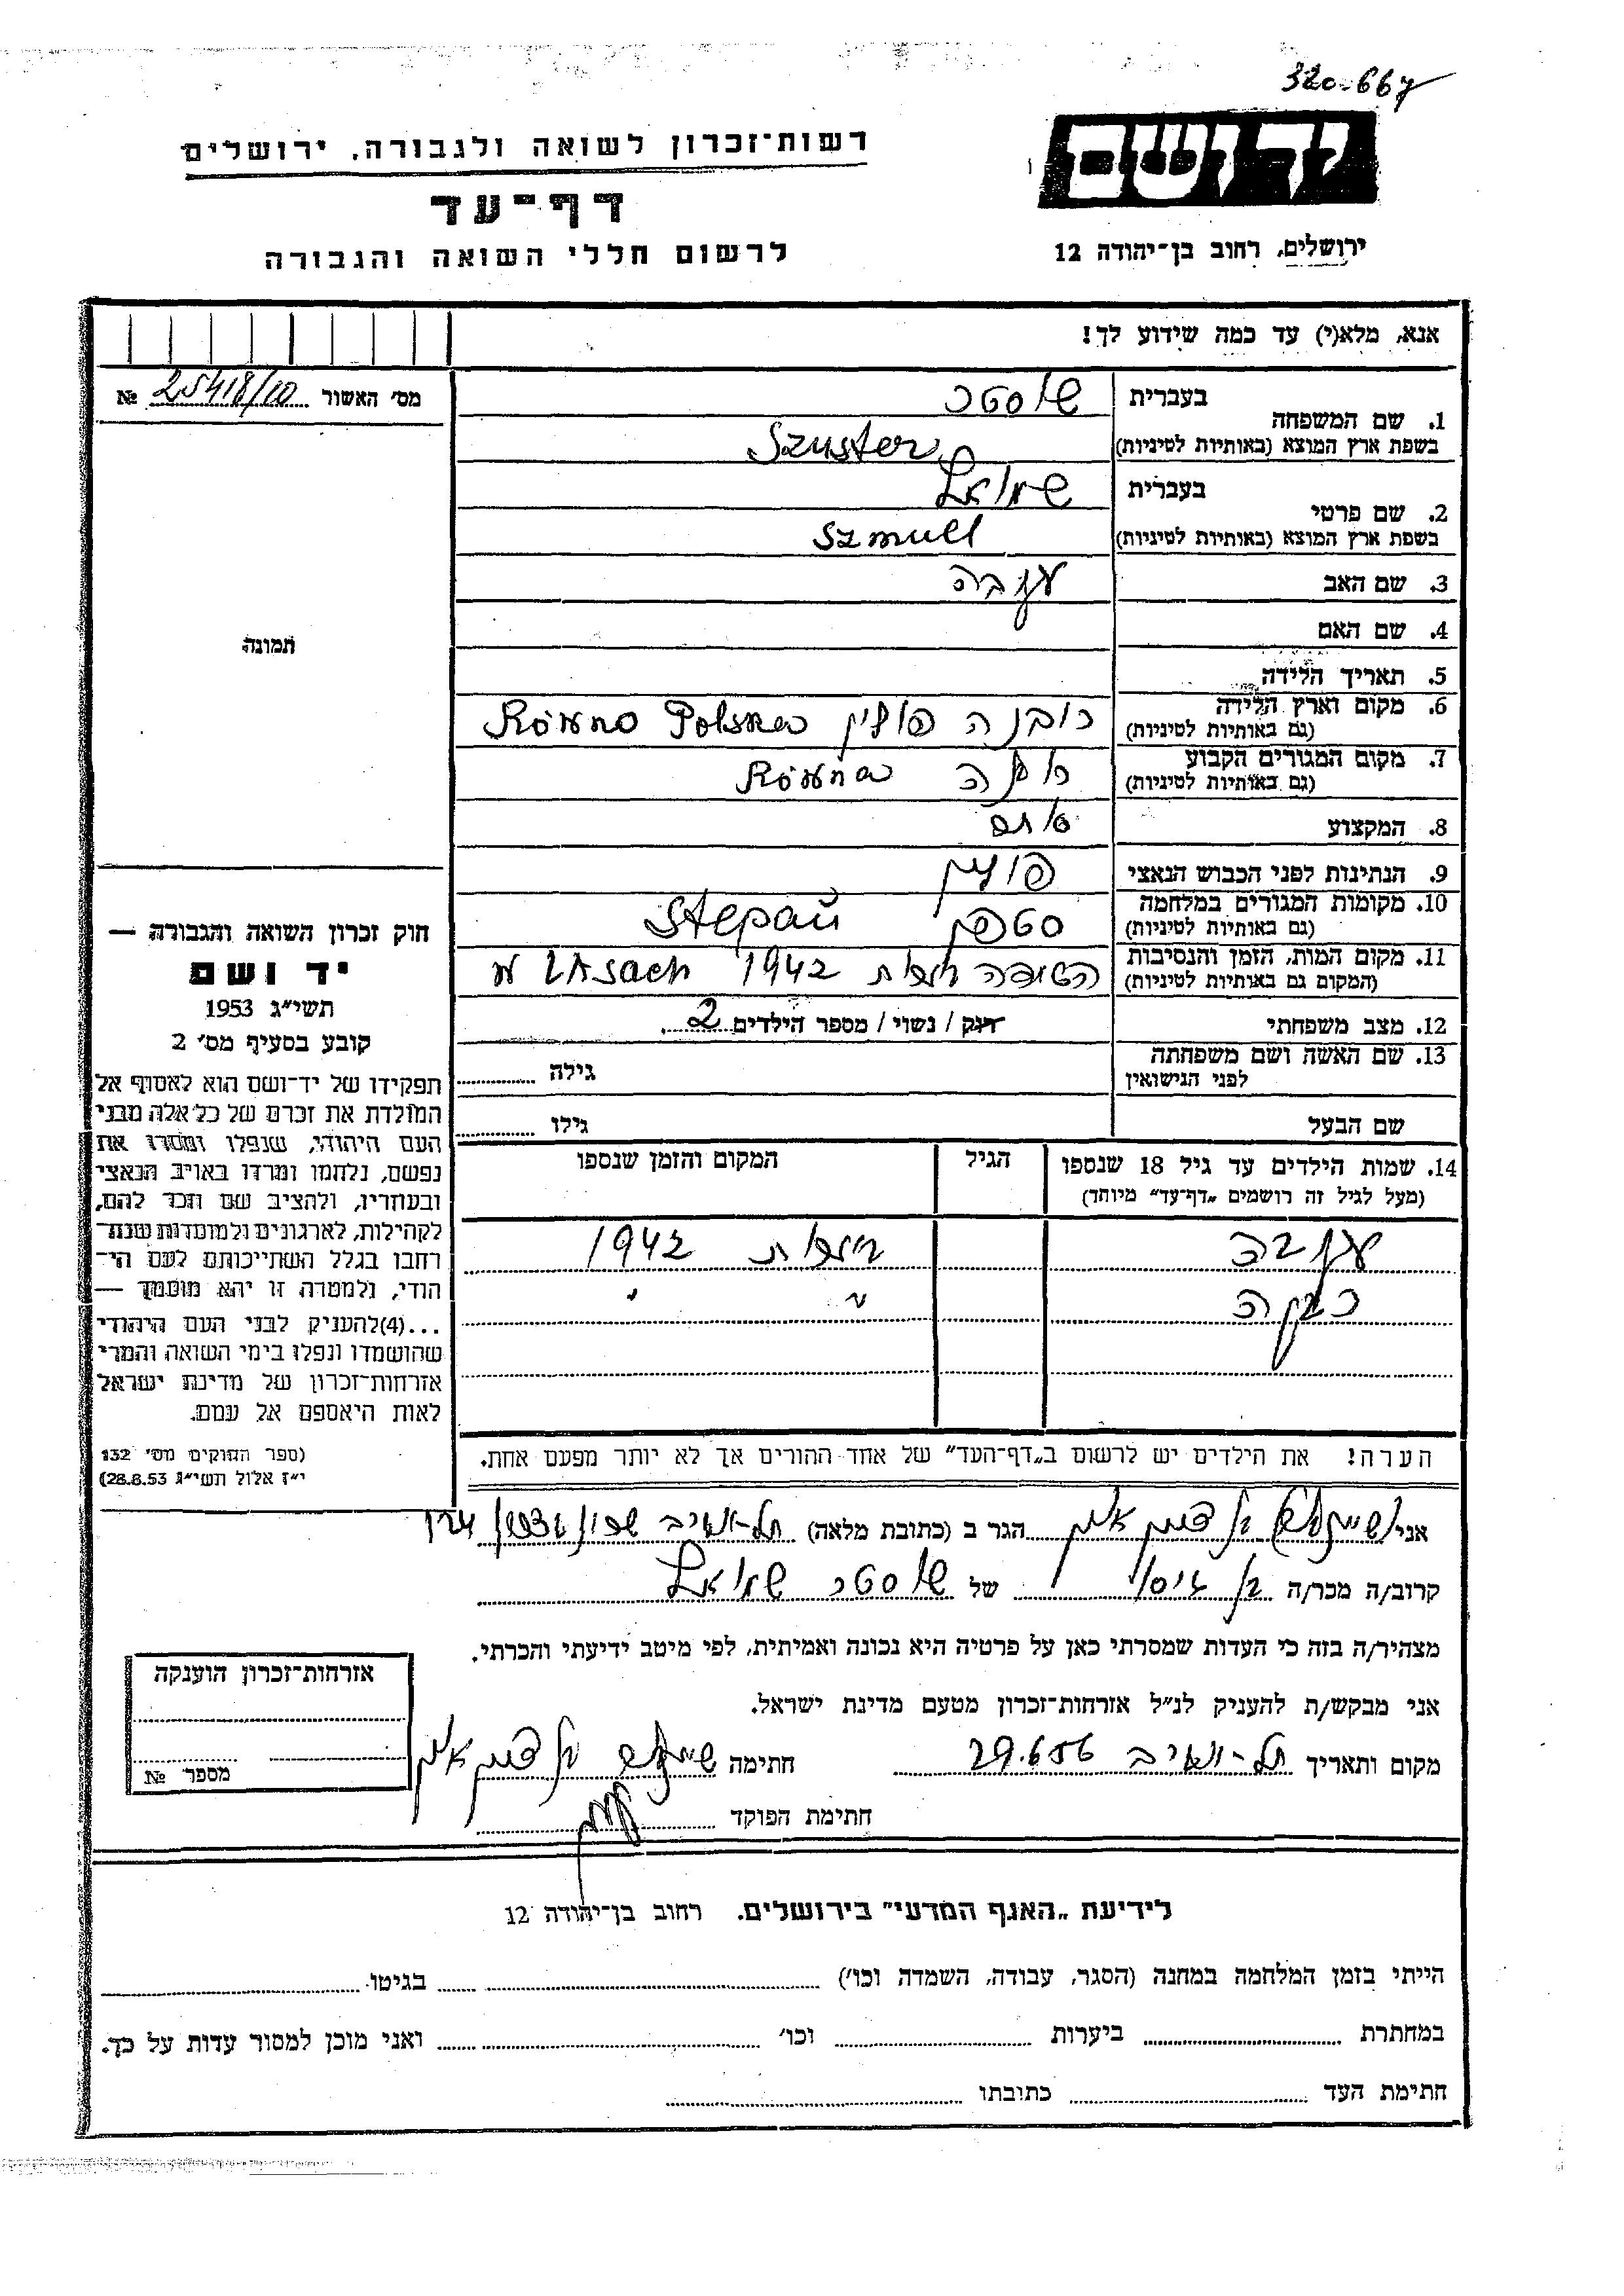 320-667
יד ושם
רשות־זכרון לשואה ולגבורה, ירושלים
דף־עד
לרשום חללי השואה והגבורה
ירושלים, רחוב בן־יהודה 12
אנא, מלא(י) עד כמה שידוע לך!
מס׳ האשור 25418/10 №
1. שם המשפחה
בעברית שוסטר
בשפת ארץ המוצא (באותיות לטיניות) Szuster
2. שם פרטי
בעברית שמואל
בשפת ארץ המוצא (באותיות לטיניות) Szmull
3. שם האב
4. שם האם
5. תאריך הלידה
6. מקום וארץ הלידה
(גם באותיות לטיניות)
רובנה פולין Równo Polska
7. מקום המגורים הקבוע
(גם באותיות לטיניות)
Równa
8. המקצוע סוחר
9. הנתינות לפני הכבוש הנאצי פולין
10. מקומות המגורים במלחמה
(גם באותיות לטיניות)
סטפן Stepań
11. מקום המות, הזמן והנסיבות
(המקום גם באותיות לטיניות)
1942 w lasach
12. מצב משפחתי רווק / נשוי / מספר הילדים 2
13. שם האשה ושם משפחתה
לפני הנישואין
גילה
שם הבעל גילו
14. שמות הילדים עד גיל 18 שנספו
(מעל לגיל זה רושמים „דף־עד״ מיוחד)
הגיל
המקום והזמן שנספו
1942
רבקה " "
הערה! את הילדים יש לרשום ב„דף־העד״ של אחד ההורים אך לא יותר מפעם אחת.
תמונה
חוק זכרון השואה והגבורה —
יד ושם
תשי״ג 1953
קובע בסעיף מס׳ 2
תפקידו של יד־ושם הוא לאסוף אל
המולדת את זכרם של כל אלה מבני
העם היהודי, שנפלו ומסרו את
נפשם, נלחמו ומרדו באויב הנאצי
ובעוזריו, ולהציב שם וזכר להם,
לקהילות, לארגונים ולמוסדות שנח־
רבו בגלל השתייכותם לעם הי־
הודי, ולמטרה זו יהא מוסמך —
...(4) להעניק לבני העם היהודי
שהושמדו ונפלו בימי השואה והמרי
אזרחות־זכרון של מדינת ישראל
לאות היאספם אל עמם.
(ספר החוקים מס׳ 132
י״ז אלול תשי״ג 28.8.53)
אני הגר ב (כתובת מלאה) תל-אביב
קרוב/ה מכר/ה של שוסטר שמואל
מצהיר/ה בזה כי העדות שמסרתי כאן על פרטיה היא נכונה ואמיתית, לפי מיטב ידיעתי והכרתי.
אני מבקש/ת להעניק לנ״ל אזרחות־זכרון מטעם מדינת ישראל.
מקום ותאריך תל-אביב 29.6.56 חתימה
חתימת הפוקד
אזרחות־זכרון הוענקה
מספר №
לידיעת „האגף המדעי״ בירושלים. רחוב בן־יהודה 12
הייתי בזמן המלחמה במחנה (הסגר, עבודה, השמדה וכו׳) בגיטו
במחתרת ביערות וכו׳ ואני מוכן למסור עדות על כך.
חתימת העד כתובתו